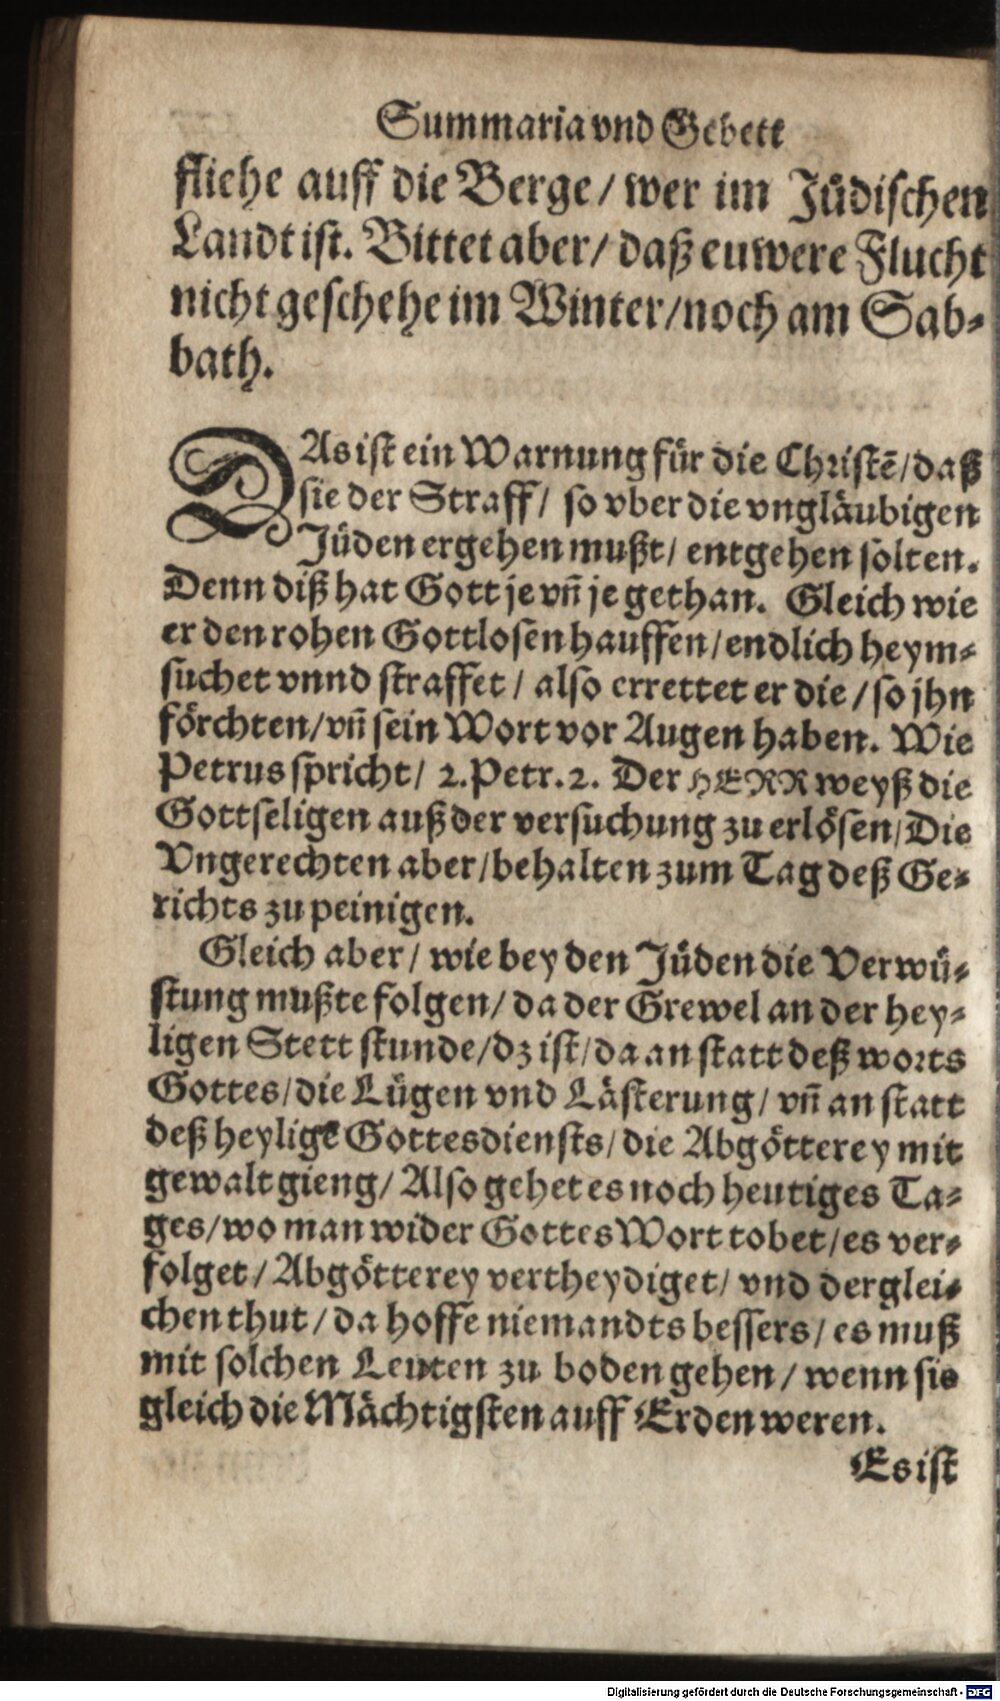 Summaria vnd Gebett
fliehe auff die Berge/ wer im Jüdischen
Landt ist. Bittet aber/ daß euwere Flucht
nicht geschehe im Winter/noch am Sab-
bath.
DAs ist ein Warnung für die Christẽ/daß
sie der Straff/ so vber die vngläubigen
Jüden ergehen mußt/ entgehen solten.
Denn diß hat Gott je vñ je gethan. Gleich wie
er den rohen Gottlosen hauffen/endlich heym-
suchet vnnd straffet/ also errettet er die/so jhn
förchten/vñ sein Wort vor Augen haben. Wie
Petrus spricht/ 2.Petr.2. Der HERR weyß die
Gottseligen auß der versuchung zu erlösen/Die
Vngerechten aber/behalten zum Tag deß Ge-
richts zu peinigen.
Gleich aber/ wie bey den Jüden die Verwü-
stung mußte folgen/ da der Grewel an der hey-
ligen Stett stunde/dz ist/da an statt deß worts
Gottes/die Lügen vnd Lästerung/ vñ an statt
deß heyligẽ Gottesdiensts/die Abgötterey mit
gewalt gieng/ Also gehet es noch heutiges Ta-
ges/wo man wider Gottes Wort tobet/es ver-
folget/Abgötterey vertheydiget/ vnd derglei-
chen thut/da hoffe niemandts bessers/ es muß
mit solchen Leuten zu boden gehen/ wenn sie
gleich die Mächtigsten auff Erden weren.
Es ist
Digitalisierung gefördert durch die Deutsche Forschungsgemeinschaft - DFG